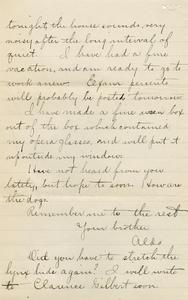 tonight, the house sounds very
noisy after the long interval of
quiet. I have had a fine
vacation, and am ready to go to
work anew. Exam permits
will probably be posted tomorrow.
I have made a fine wren box
out of the box which contained
my opera glasses, and will put it
up outside my window.
Have not heard from you
lately, but hope to soon. How are
the dogs.
Remember me to the rest
Your brother
Aldo
Did you have to stretch the
lynx hide again? I will write
to Clarence Gilbert soon.